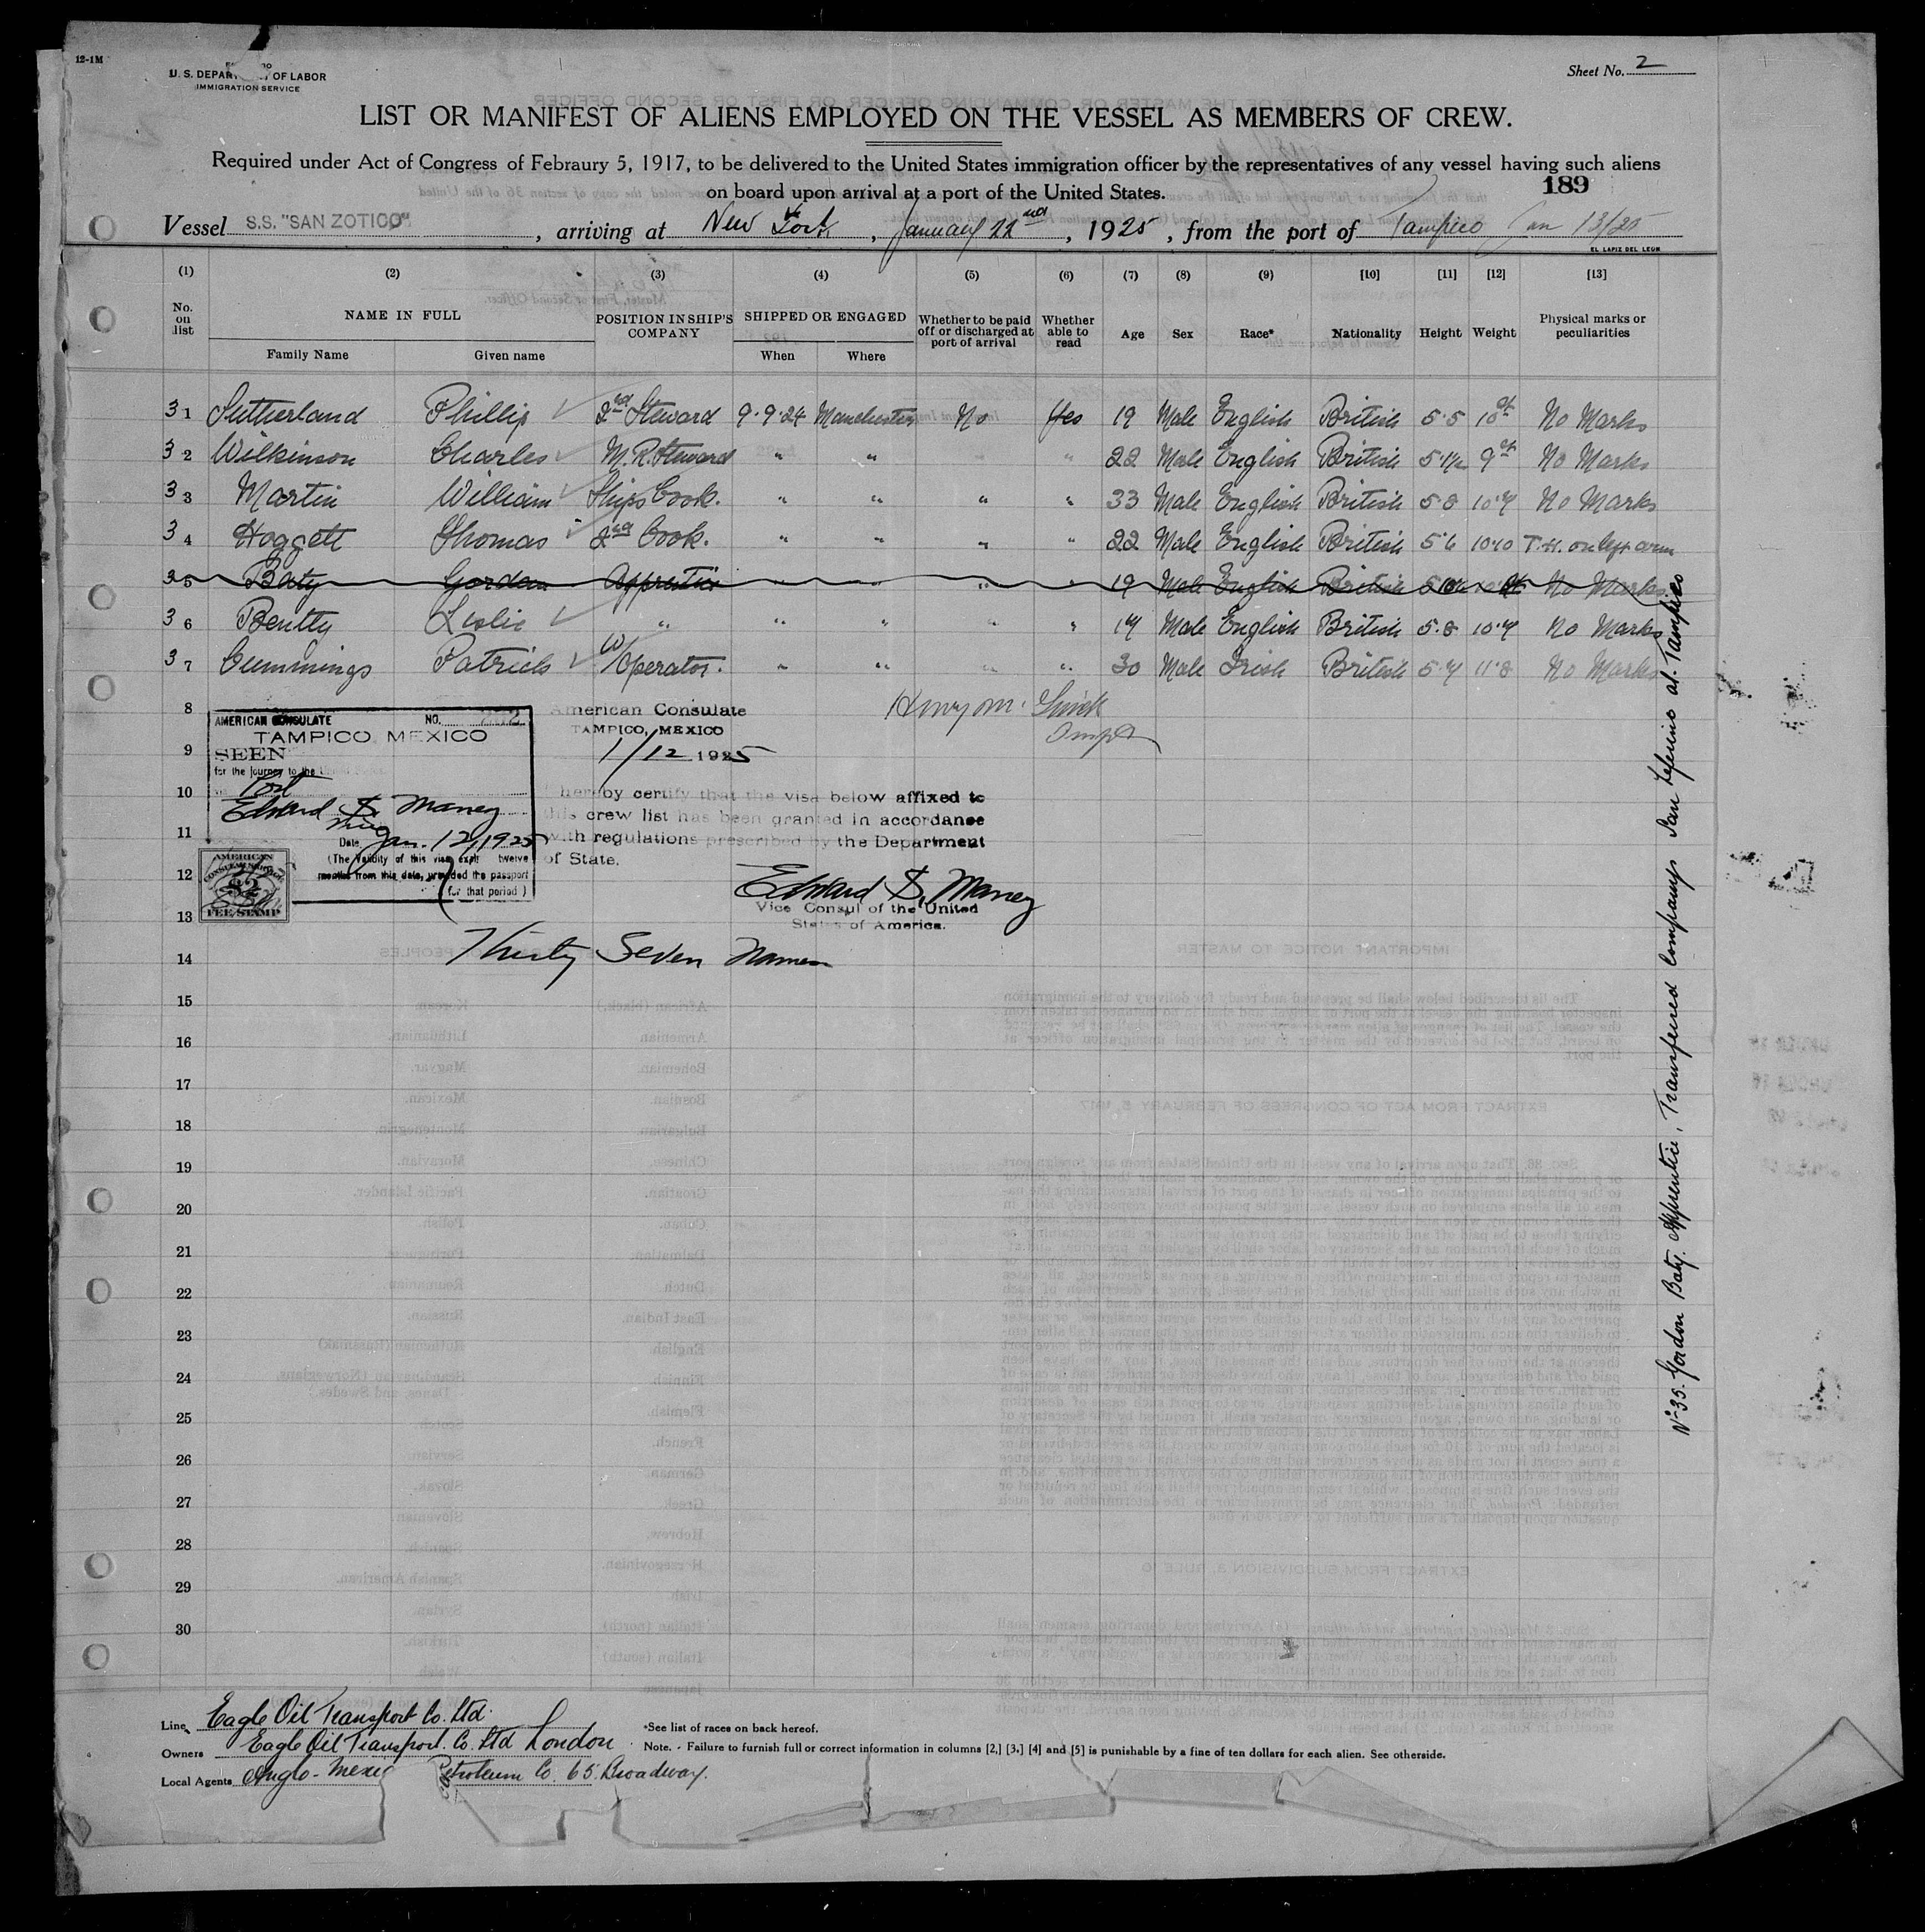 12-1M
U. S. DEPAR OF LABOR
IMMIGRATION SERVICE
Sheet No. 2
LIST OR MANIFEST OF ALIENS EMPLOYED ON THE VESSEL AS MEMBERS OF CREW.
Required under Act of Congress of Febraury 5, 1917, to be delivered to the United States immigration officer by the representatives of any vessel having such aliens
on board upon arrival at a port of the United States.
189
Vessel S.S. "SAN ZOTICO", arriving at New York, January 22nd, 1925, from the port of Tampico Jan 13/25
EL LAPIZ DEL LEON
(1) (2) (3) (4) (5) (6) (7) (8) (9) [10] [11] [12] [13]
No. on list NAME IN FULL Family Name Given name POSITION IN SHIP'S COMPANY SHIPPED OR ENGAGED When Where Whether to be paid off or discharged at port of arrival Whether able to read Age Sex Race* Nationality Height Weight Physical marks or peculiarities
31 Sutherland Phillip 2nd Steward 9.9.24 Manchester No Yes 19 Male English British 5.5 10st No Marks
32 Wilkinson Charles M.R. Steward " " " " 22 Male English British 5.1½ 9st No Marks
33 Martin William Ships Cook. " " " " 33 Male English British 5.8 10.7 No Marks
34 Hoggett Thomas 2nd Cook. " " " " 22 Male English British 5.6 10.10 T.H. on left arm
35 Baty Gordon Apprentice " " " " 19 Male English British No Marks
36 Bentty Leslie " " " " " 17 Male English British 5.8 10.7 No Marks
37 Cummings Patrick W/Operator. " " " " 30 Male Irish British 5.7 11.8 No Marks
8
AMERICAN CONSULATE NO. 252
TAMPICO, MEXICO
SEEN
for the journey to the United States
Edward S. Maney
Date Jan. 12/1925
(The validity of this visa expi twelve
months from this date, provided the passport
for that period)
AMERICAN
CONSULAR SERVICE
$2
FEE STAMP
American Consulate
TAMPICO, MEXICO
1/12 1925
I hereby certify that the visa below affixed to
this crew list has been granted in accordance
with regulations prescribed by the Department
of State.
Edward S. Maney
Vice Consul of the United
States of America.
Henry M.
9
10
11
12
13
14
Thirty Seven Names
15
16
17
18
19
20
21
22
23
24
25
26
27
28
29
30
No 35. Gordon Baty. Apprentice, Transferred Company's San Zeferino at Tampico
Line Eagle Oil Transport Co. Ltd.
Owners Eagle Oil Transport. Co. Ltd London
Local Agents Anglo-Mexic Petroleum Co. 65. Broadway.
*See list of races on back hereof.
Note. - Failure to furnish full or correct information in columns [2,] [3.] [4] and [5] is punishable by a fine of ten dollars for each alien. See otherside.